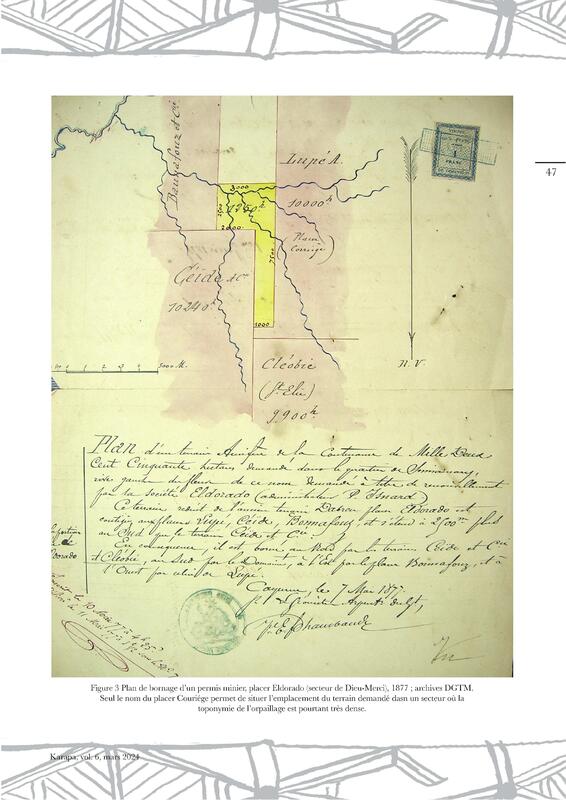 47
Bonnafouz et Cie
Lupé A.
3000
1250h
2000
10000h
(Placer Couriège)
7500
Céide & Cie
10240h
1000
Cléobie
(St Elie)
9.900h
5000 M.
N. V.
Plan d'un terrain Aurifère de la Contenance de Mille Deux
Cent Cinquante hectares demandé dans le quartier de Sinnamary,
rive gauche du fleuve de ce nom demandé à titre de renouvellement
par la société Eldorado (administrateur P. Isnard)
Ce terrain réduit de l'ancien terrain placer Eldorado est
contigu aux placers Lupé, Céide, Bonnafouz, et s'étend à 2500m plus
au Sud que le terrain Céide et Cie.
En conséquence, il est borné au Nord par le terrain Céide et Cie
et Cléobie, au Sud par le Domaine, à l'Est par le placer Bonnafouz, et à
l'Ouest par celui de Lupé.
Cayenne, le 7 Mai 187
Figure 3 Plan de bornage d'un permis minier, placer Eldorado (secteur de Dieu-Merci), 1877 ; archives DGTM.
Seul le nom du placer Couriége permet de situer l'emplacement du terrain demandé dasn un secteur où la
toponymie de l'orpaillage est pourtant très dense.
Karapa, vol. 6, mars 2024